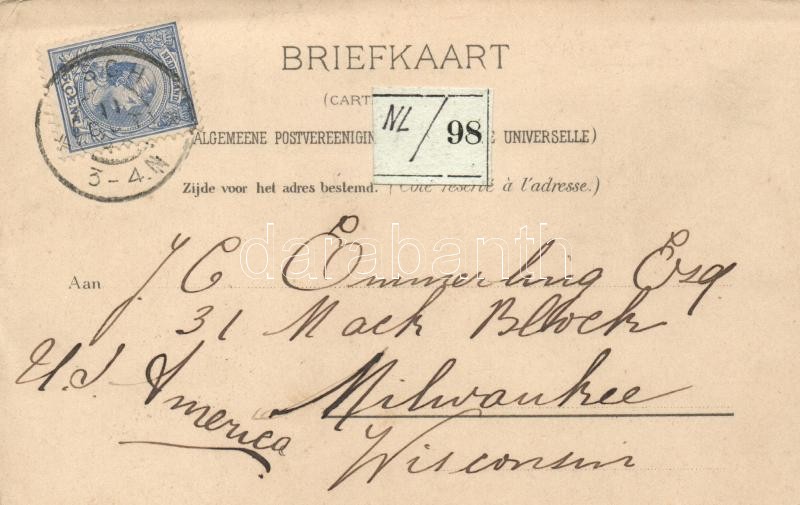 BRIEFKAART
(CART
NL / 98
ALGEMEENE POSTVEREENIGIN E UNIVERSELLE)
Zijde voor het adres bestemd. (Côté réservé à l'adresse.)
3-4 N
darabanth
Aan J. C. Emmerling Esq
31 Mack Block
Milwaukee
U.S America
Wisconsin